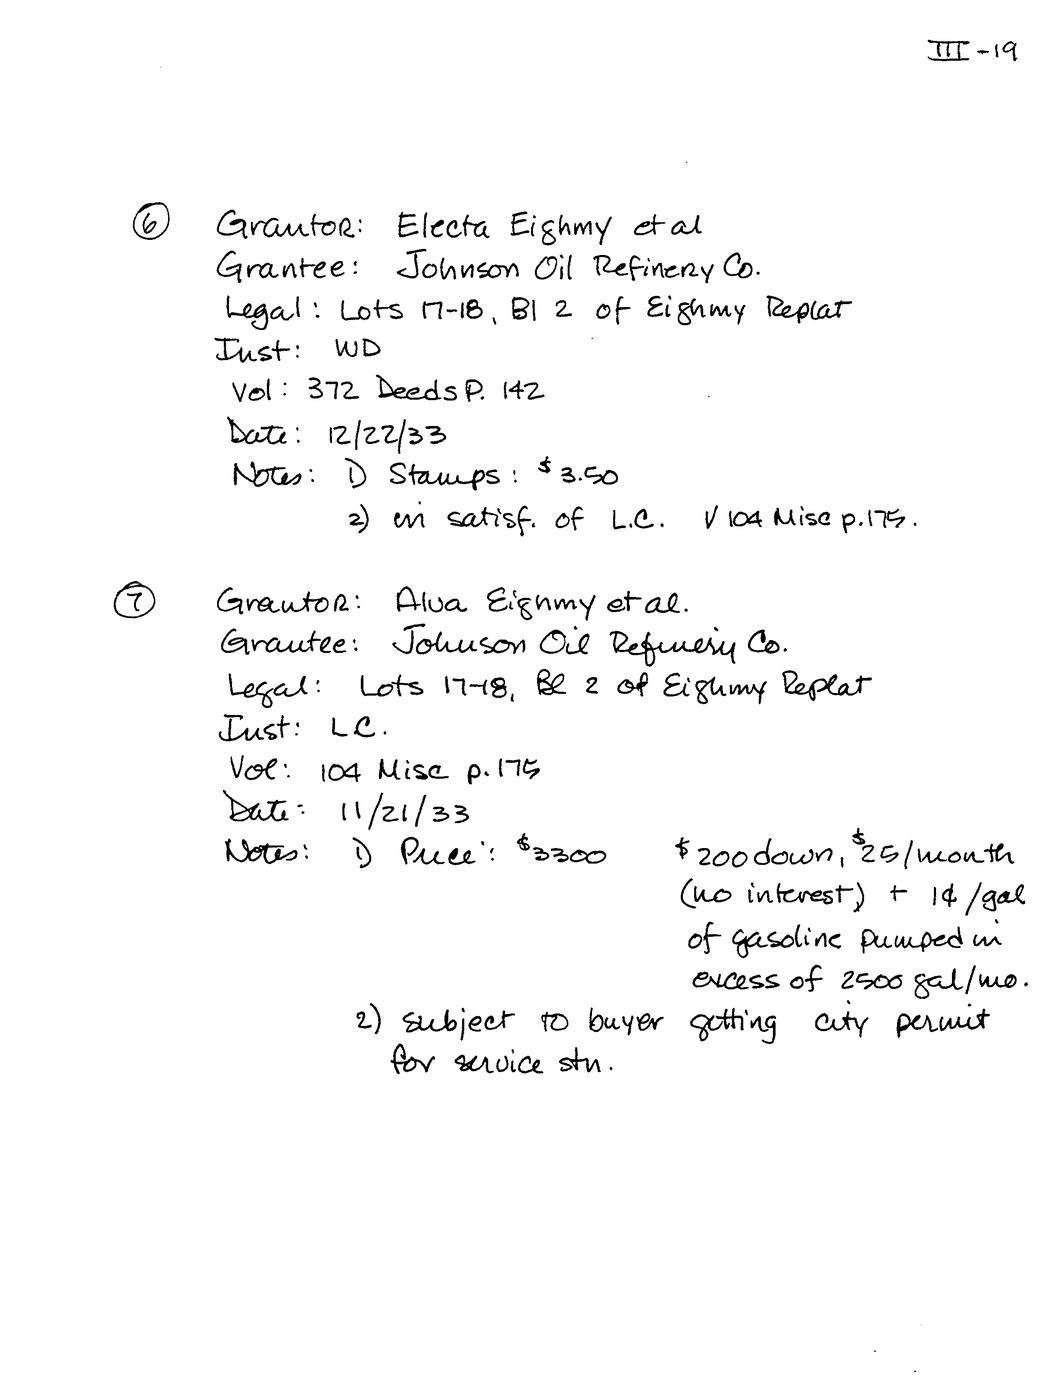 III-19
6 Grantor: Electa Eighmy et al
Grantee: Johnson Oil Refinery Co.
Legal: Lots 17-18, Bl 2 of Eighmy Replat
Inst: WD
Vol: 372 Deeds P. 142
Date: 12/22/33
Notes: 1) Stamps: $3.50
2) in satisf. of L.C. V 104 Misc p.175.
7 Grantor: Alva Eighmy et al.
Grantee: Johnson Oil Refinery Co.
Legal: Lots 17-18, Bl 2 of Eighmy Replat
Inst: L.C.
Vol: 104 Misc p.175
Date: 11/21/33
Notes: 1) Price: $3300 $200 down, $25/month
(no interest) + 1¢/gal
of gasoline pumped in
excess of 2500 gal/mo.
2) subject to buyer getting city permit
for service stn.